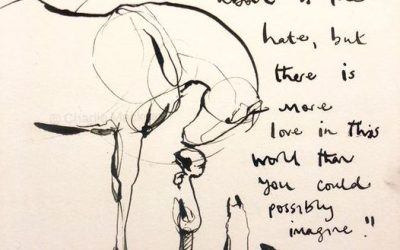 about is the
hate, but
there is
more
love in this
world than
you could
possibly
imagine!!